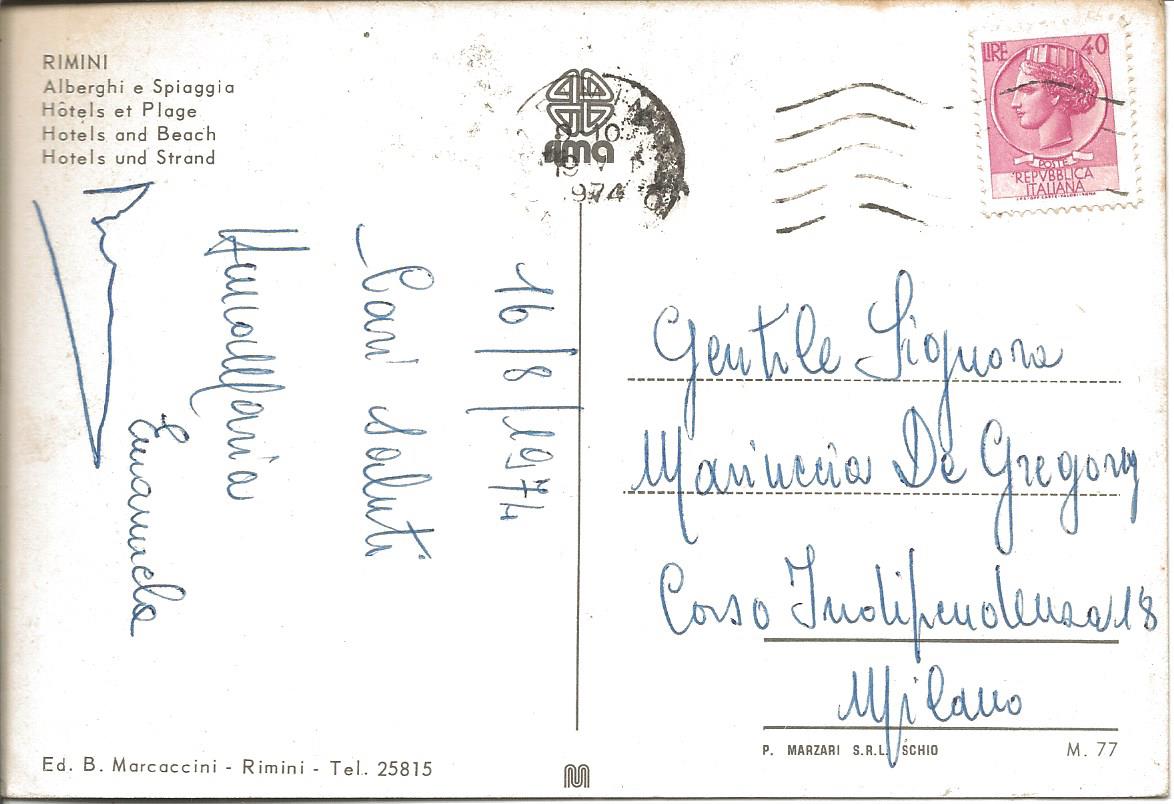 RIMINI
Alberghi e Spiaggia
Hôtels et Plage
Hotels and Beach
Hotels und Strand
rima
974
LIRE 40
POSTE
REPVBBLICA
ITALIANA
16/8/1974
Cari saluti
AnnaMaria
Emanuela
Gentile Signora
Mariuccia De Gregory
Corso Indipendenza 18
Milano
P. MARZARI S.R.L. SCHIO M. 77
Ed. B. Marcaccini - Rimini - Tel. 25815